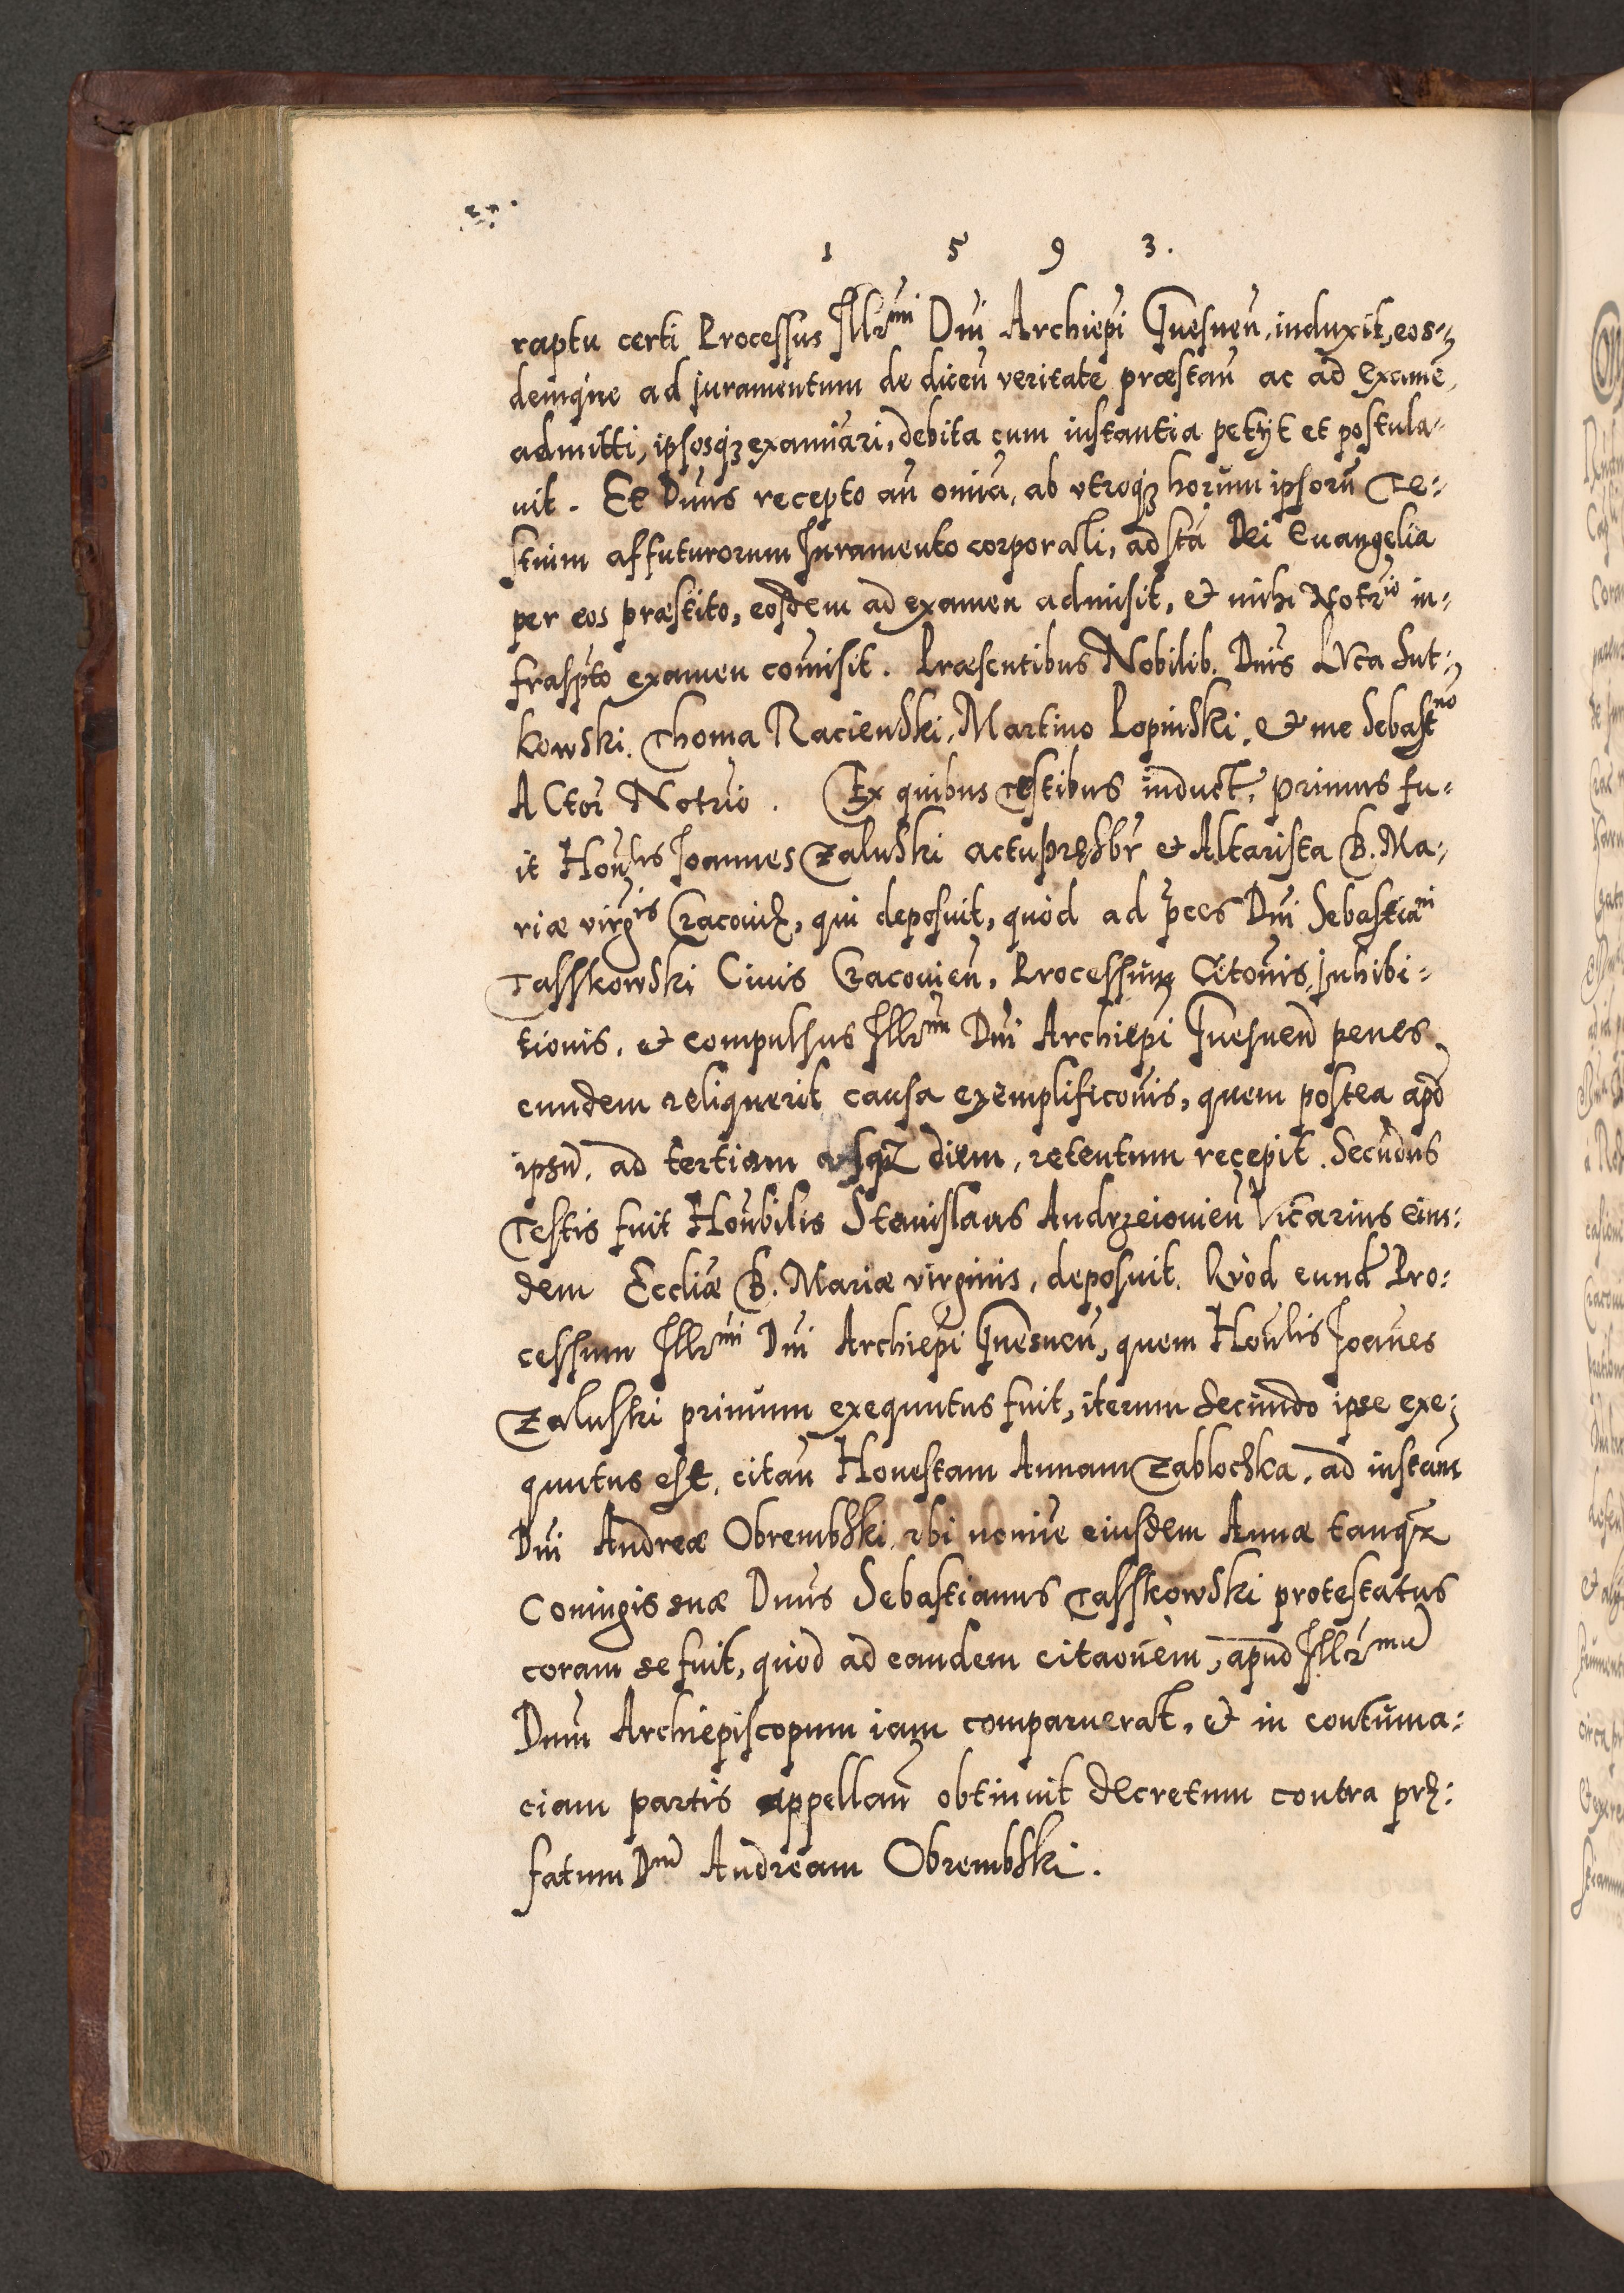 1 5 9 3.
raptu certi Processus Illr̃mi Dñi Archiepi Gnesneñ, induxit, eos-
demque ad juramentum de diceñ veritate præstañ ac ad Examẽ
admitti, ipsosq3 examiñari, debita cum instantia petijt et postula-
uit. Et Dnus recepto añ omĩa, ab vtroq3 horum ipsorũ Te:
stium affuturorum Juramento corporali, ad sta Dei Euangelia
per eos præstito, eosdem ad examen admisit, & mihi Notrio in-
frasp̃to examen com̃isit. Præsentibus Nobilib. Dnis LVca Sut-
kowski. Thoma Racienski, Martino Lopinski, & me Sebastno
ACtor̃ Notrio. Ex quibus Testibus induct. primus fu-
it Hoñlis Joannes Zaluski actupręsbr̃ & Altarista B. Ma-
riæ virgis Cracouię, qui deposuit, quòd ad p̃ces Dñi Sebastiani
Tasskowski Ciuis Cracouieñ, Processum Citõnis, Jnhibi-
tionis, & compulsus Illrmi Dñi Archiep̃i Gnesneñ penes
eundem reliquerit causa exemplificõnis, quem postea apd
ipsũ, ad tertiam vsq3 diem, retentum recepit. Secũdus
Testis fuit Hoñbilis Stanislaus Andrzeiouieñ Vicarius eius-
dem Eccliæ B. Mariæ virginis, deposuit. Qvòd eund Pro-
cessum Illrmi Dñi Archiepi Gnesneñ, quem Hoñlis Joañes
Zaluski primum exequutus fuit, iterum secundo ipse exe-
quutus est, citañ Honestam Annam Zablocska, ad instam
Dñi Andreæ Obrembski, vbi noñie eiusdem Annæ tanq̃
Coniugis suæ Dnus Sebastianus Tasskowski protestatus
coram se fuit, quòd ad eandem citaõnem, apud Illr̃mũ
Dnum Archiepiscopum iam comparuerat, & in contuma-
ciam partis appellañ obtinuit decretum contra prę-
fatum Dnũ Andream Obrembski.